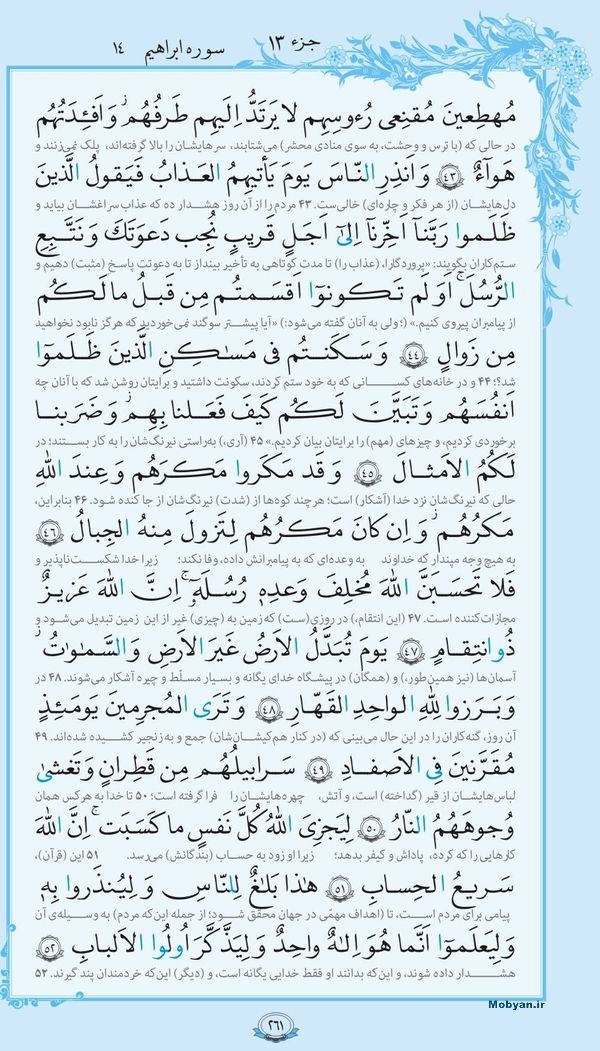 جزء ۱۳
سوره ابراهیم ۱۴
مُهطِعینَ مُقنِعی رُءوسِهِم لا یَرتَدُّ اِلَیهِم طَرفُهُم وَ اَفئِدَتُهُم
در حالی که (با ترس و وحشت، به سوی منادی محشر) می‌شتابند، سرهایشان را بالا گرفته‌اند، پلک نمی‌زنند و
هَوآءٌ ﴿۴۳﴾ وَ اَنذِرِ النّاسَ یَومَ یَأتیهِمُ العَذابُ فَیَقولُ الَّذینَ
دل‌هایشان (از هر فکر و چاره‌ای) خالی‌ست. ۴۳ مردم را از آن روز هشدار ده که عذاب سراغشان بیاید و
ظَلَموا رَبَّنآ اَخِّرنآ اِلیٰٓ اَجَلٍ قَریبٍ نُجِب دَعوَتَكَ وَ نَتَّبِعِ
ستم‌کاران بگویند: «پروردگارا، (عذاب را) تا مدت کوتاهی به تأخیر بینداز تا به دعوتت پاسخ (مثبت) دهیم و
الرُّسُلَ ۚ اَوَ لَم تَکونوٓا اَقسَمتُم مِن قَبلُ ما لَکُم
از پیامبران پیروی کنیم.» (؛ولی به آنان گفته می‌شود:) «آیا پیشتر سوگند نمی‌خوردید که هرگز نابود نخواهید
مِن زَوالٍ ﴿۴۴﴾ وَ سَکَنتُم فی مَساکِنِ الَّذینَ ظَلَموٓا
شد؟؛ ۴۴ و در خانه‌های کسانی که به خود ستم کردند، سکونت داشتید و برایتان روشن شد که با آنان چه
اَنفُسَهُم وَ تَبَیَّنَ لَکُم کَیفَ فَعَلنا بِهِم وَ ضَرَبنا
برخوردی کردیم، و چیزهای (مهم) را برایتان بیان کردیم.» ۴۵ (آری،) به‌راستی نیرنگ‌شان را به کار بستند؛ در
لَکُمُ الاَمثالَ ﴿۴۵﴾ وَ قَد مَکَروا مَکرَهُم وَ عِندَ اللّٰهِ
حالی که نیرنگ‌شان نزد خدا (آشکار) است؛ هرچند کوه‌ها از (شدت) نیرنگ‌شان از جا کنده شود. ۴۶ بنابراین،
مَکرُهُم وَ اِن کانَ مَکرُهُم لِتَزولَ مِنهُ الجِبالُ ﴿۴۶﴾
به هیچ وجه مپندار که خداوند به وعده‌ای که به پیامبرانش داده، وفا نکند؛ زیرا خدا شکست‌ناپذیر و
فَلا تَحسَبَنَّ اللّٰهَ مُخلِفَ وَعدِهٖ رُسُلَهٗٓ ۗ اِنَّ اللّٰهَ عَزیزٌ
مجازات‌کننده است. ۴۷ (این انتقام،) در روزی(ست) که زمین به (چیزی) غیر از این زمین تبدیل می‌شود و
ذُو انتِقامٍ ﴿۴۷﴾ یَومَ تُبَدَّلُ الاَرضُ غَیرَ الاَرضِ وَ السَّماواتُ ۖ
آسمان‌ها (نیز همین‌طور،) و (همگان) در پیشگاه خدای یگانه و بسیار مسلّط و چیره آشکار می‌شوند. ۴۸ در
وَ بَرَزوا لِلّٰهِ الواحِدِ القَهّارِ ﴿۴۸﴾ وَ تَرَی المُجرِمینَ یَومَئِذٍ
آن روز، گنه‌کاران را در این حال می‌بینی که (در کنار هم‌کیشان‌شان) جمع و به‌زنجیر کشیده شده‌اند. ۴۹
مُقَرَّنینَ فِی الاَصفادِ ﴿۴۹﴾ سَرابیلُهُم مِن قَطِرانٍ وَ تَغشیٰ
لباس‌هایشان از قیر (گداخته) است، و آتش، چهره‌هایشان را فرا گرفته است؛ ۵۰ تا خدا به هرکس همان
وُجوهَهُمُ النّارُ ﴿۵۰﴾ لِیَجزِیَ اللّٰهُ کُلَّ نَفسٍ ما کَسَبَت ۚ اِنَّ اللّٰهَ
کارهایی را که کرده، پاداش و کیفر بدهد؛ زیرا او زود به حساب (بندگانش) می‌رسد. ۵۱ این (قرآن)،
سَریعُ الحِسابِ ﴿۵۱﴾ هٰذا بَلاغٌ لِلنّاسِ وَ لِیُنذَروا بِهٖ
پیامی برای مردم است، تا (اهداف مهمّی در جهان محقق شود؛ از جمله این‌که مردم) به وسیله‌ی آن
وَ لِیَعلَموٓا اَنَّما هُوَ اِلٰهٌ واحِدٌ وَ لِیَذَّکَّرَ اُولُوا الاَلبابِ ﴿۵۲﴾
هشدار داده شوند، و این‌که بدانند او فقط خدایی یگانه است، و (دیگر) این‌که خردمندان پند گیرند. ۵۲
Mobyan.ir
۲۶۱